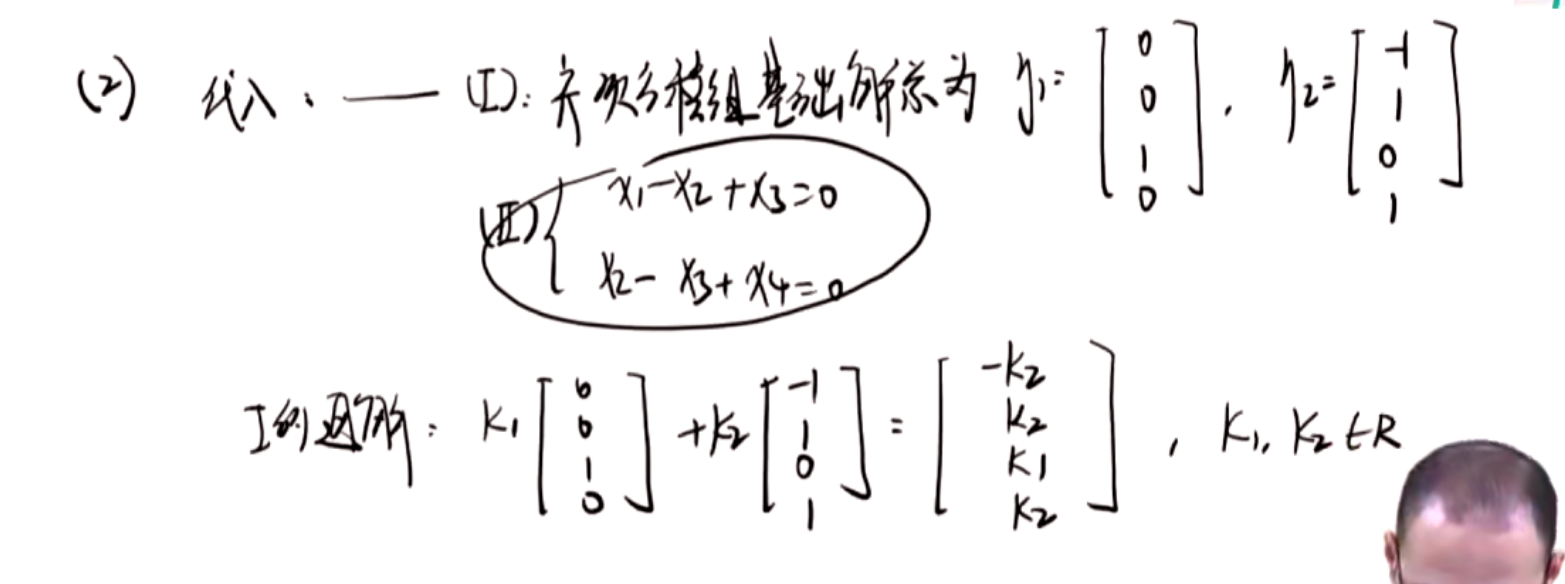 (2) 代入：—— (I)：齐次方程组基础解系为 η₁=[0 0 1 0], η₂=[-1 1 0 1]
(II){ x₁-x₂+x₃=0
x₂-x₃+x₄=0
I的通解：k₁[0 0 1 0]+k₂[-1 1 0 1]=[-k₂ k₂ k₁ k₂], k₁, k₂∈R